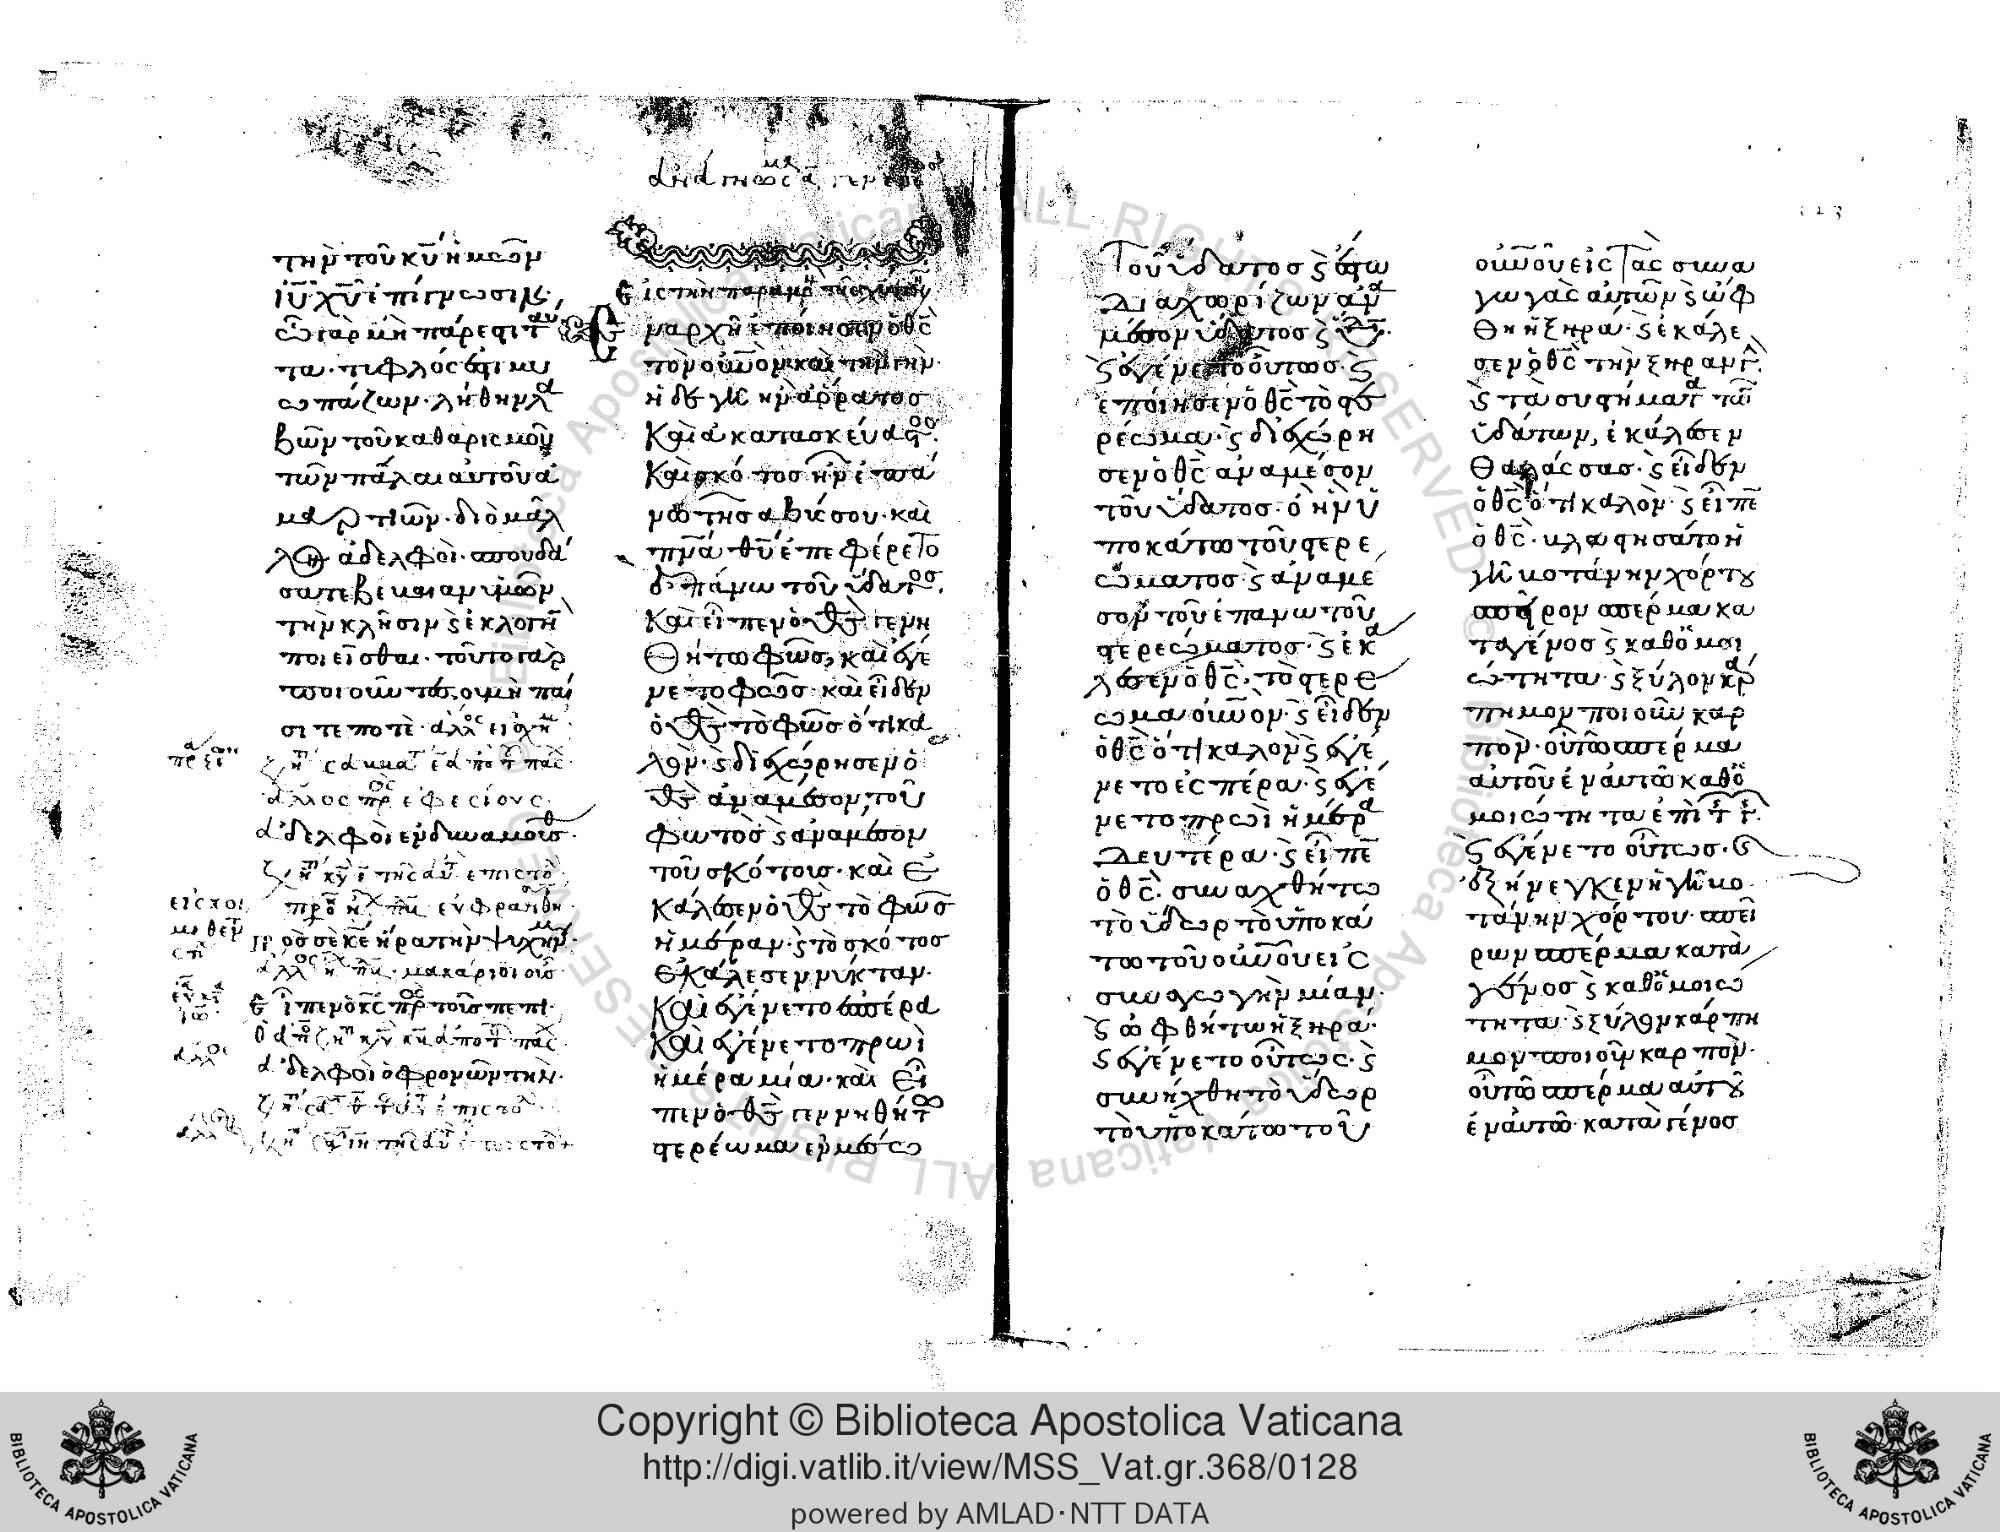 τὴν τοῦ κ̅υ̅ ἡμῶν
ι̅υ̅ χ̅υ̅ ἐπίγνωσιν·
ὧ γὰρ μὴ πάρεστι ταυ
τα· τυφλός ἐστι μυ
ωπάζων· λήθην λα
βὼν τοῦ καθαρισμοῦ
τῶν πάλαι αὐτοῦ ἁ
μαρτιῶν· διὸ μᾶλ
λον ἀδελφοὶ· σπουδά
σατε βεβαίαν ὑμῶν
τὴν κλῆσιν ϗ ἐκλογὴν
ποιεῖσθαι· τοῦτο γὰρ
ποιοῦντες, οὐ μὴ πταί
σιτε ποτὲ·
πρ ἐφεσίους
ἀδελφοὶ ἐνδυναμοῦσθ
πρὸς σὲ κ̅ε̅ ἦρα τὴν ψυχήν
μακάριοι οὓς
εἶπεν ὁ κ̅ς̅ πρ τοὺς πεπι
ἀδελφοὶ ὁ φρονῶν τὴν
Εἰς τὴν παραμο
Εν ἀρχῆ ἐποίησεν ὁ θ̅ς̅
τὸν ο̅υ̅ν̅ον καὶ τὴν γὴν·
ἡ δὲ γῆ ἦν ἀόρρατος
Καὶ ἀκατασκέυαστος·
Καὶ σκότος ἦν ἐπά
νω τῆς αβύσσου· καὶ
π̅ν̅α̅ θ̅υ̅ ἐπεφέρετο
ἐπάνω τοῦ ὕδατος.
Καὶ εἶπεν ὁ θ̅ς̅ γενη
Θήτω φῶς, καὶ ἐγέ
νετο φῶς· καὶ εἶδεν
ὁ θ̅ς̅ τὸ φῶς ὅτι κα
λὸν· ϗ διεχώρησεν ὁ
θ̅ς̅ ἀναμέσον, τοῦ
φωτὸς ϗ ἀναμέσον
τοῦ σκότους· καὶ Ἐ
Κάλεσεν ὁ θ̅ς̅ τὸ φῶς
ἡμέραν· ϗ τὸ σκότος
Ἐκάλεσεν νύκταν·
Καὶ ἐγένετο εσπέρα
Καὶ ἐγένετο πρωὶ
ἡμέρα μία· καὶ Εἶ
πεν ὁ θ̅ς̅ γεννηθήτω
στερέωμα ἐν μέσω
Τοῦ ὕδατος ϗ ἔστω
Διαχωρίζων ἀνα
μέσον ὕδατος ϗ ὕδτ.
ϗ ἐγένετο οὕτως· ϗ
ἐποίησεν ὁ θ̅ς̅ τὸ στε
ρέωμα· ϗ διεχώρη
σεν ὁ θ̅ς̅ αναμέσον
τοῦ ὕδατος· ὁ ἦν ὑ
ποκάτω τοῦ στερε
ώματος· ϗ ἀναμέ
σον τοῦ ἐπανω τοῦ
στερεώματος· ϗ ἐκά
λεσεν ὁ θ̅ς̅· τὸ στερε
ωμα ο̅υ̅ν̅ον· ϗ εἶδεν
ὁ θ̅ς̅ ὅτι καλὸν ϗ ἐγέ
νετο ἑσπέρα· ϗ ἐγέ
νετο πρωὶ ἡμέρα
Δευτέρα· ϗ εἶπε
ὁ θ̅ς̅· συναχθήτω
τὸ ὕδωρ τὸ ὑποκά
τω τοῦ ο̅υ̅ν̅ου εἰς
συναγωγὴν μίαν·
ϗ ὀφθήτω ἡ ξηρά·
ϗ ἐγένετο οὕτως· ϗ
συνήχθη τὸ ὕδωρ
τὸ ὑποκάτω τοῦ
ο̅υ̅ν̅ου εἰς Τὰς συνα
γωγὰς αὐτῶν ϗ ὤφ
Θη ἡ ξηρά· ϗ ἐκάλε
σεν ὁ θ̅ς̅ τὴν ξηραν γ.
ϗ τὰ συστήματα τῶ
ὑδάτων, ἐκάλεσεν
Θαλάσσας· ϗ εἶδεν
ὁ θ̅ς̅ ὅτι καλὸν· ϗ εἶπε
ὁ θ̅ς̅· βλαστησάτο ἡ
γῆ βοτάνην χόρτου
σπῆρον σπέρμα κα
τα γένος ϗ καθ' ὅμοι
ώτητα· ϗ ξύλον κάρ
πημον ποιοῦν καρ
πὸν· οὗ τὸ σπέρμα
αὐτοῦ ἐν αὐτῶ καθ' ὁ
μοιώτητα ἐπὶ τ γ.
ϗ ἐγένετο οὕτως· ϗ
ἐξήνεγκεν ἡ γῆ βο
τάνην χόρτου· σπεῖ
ρων σπέρμα κατὰ
γένος ϗ καθ' ὅμοιώ
τητα· ϗ ξύλον κάρπη
μον ποιοῦν καρπὸν·
οὗ τὸ σπέρμα αὐτοῦ
ἐν αὐτῶ· κατὰ γένος
Copyright © Biblioteca Apostolica Vaticana
http://digi.vatlib.it/view/MSS_Vat.gr.368/0128
powered by AMLAD·NTT DATA
BIBLIOTECA APOSTOLICA VATICANA
BIBLIOTECA APOSTOLICA VATICANA